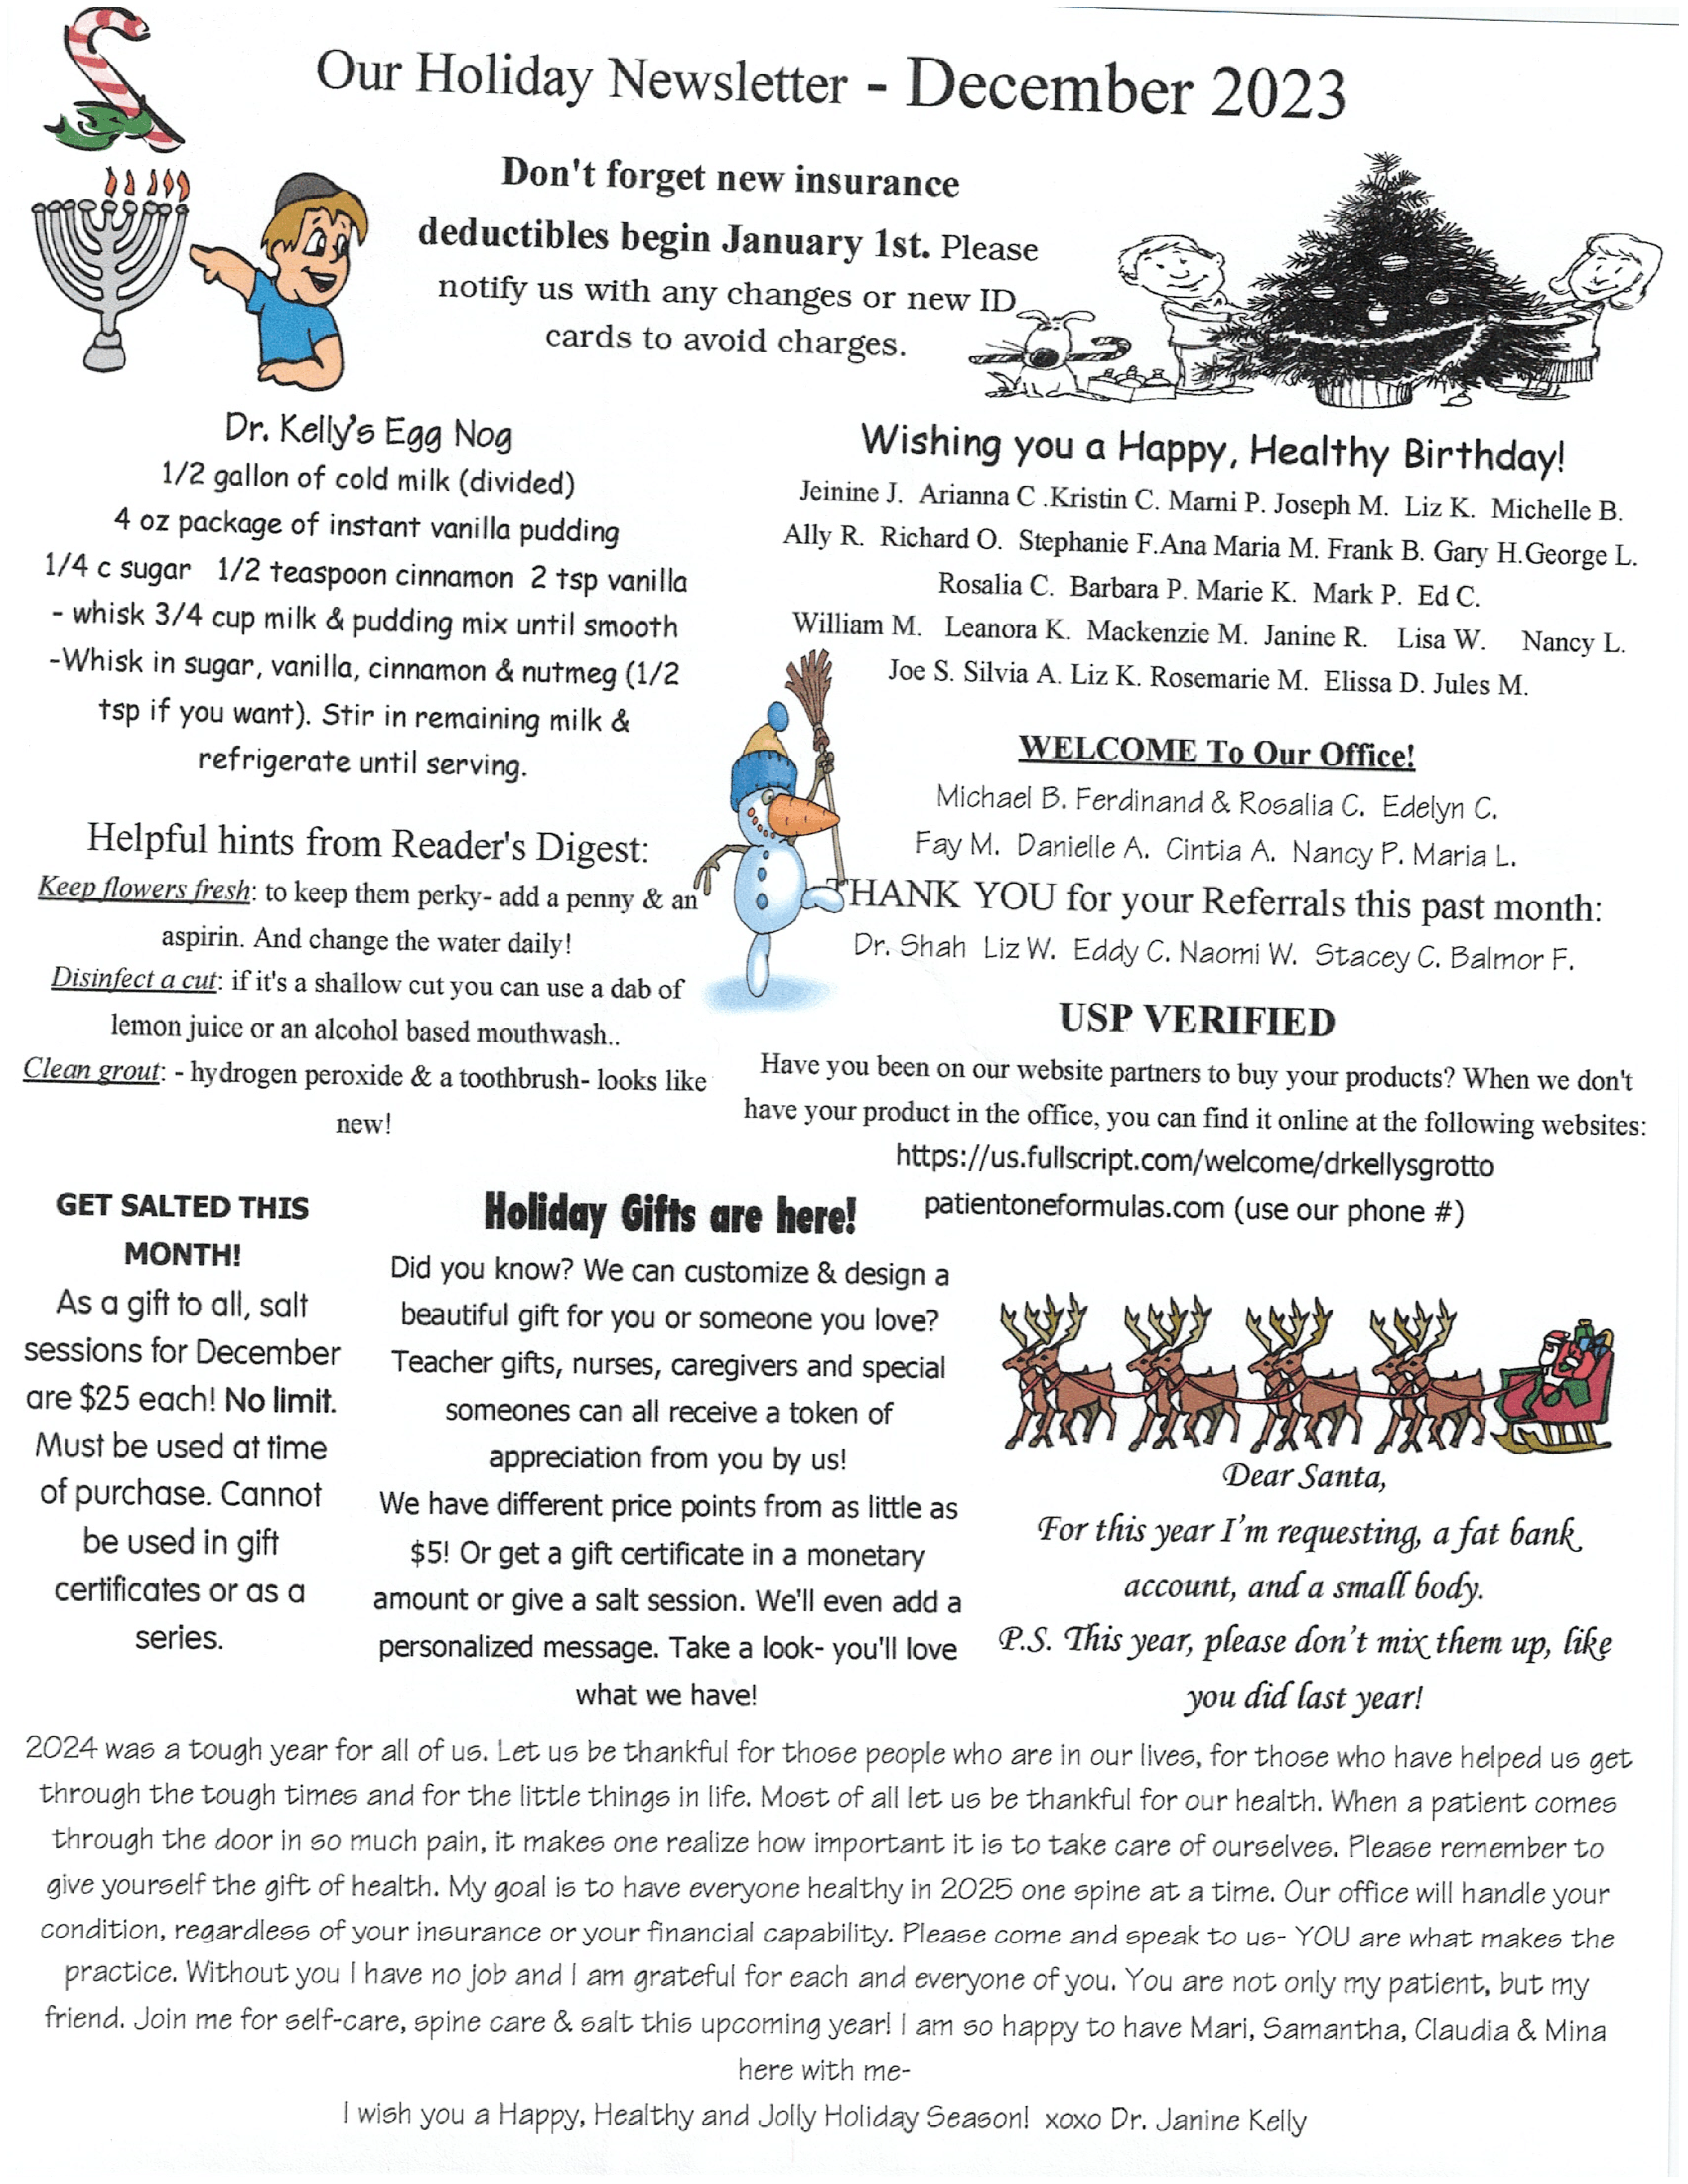 Our Holiday Newsletter - December 2023
Don't forget new insurance
deductibles begin January 1st. Please
notify us with any changes or new ID
cards to avoid charges.
Dr. Kelly's Egg Nog
1/2 gallon of cold milk (divided)
4 oz package of instant vanilla pudding
1/4 c sugar 1/2 teaspoon cinnamon 2 tsp vanilla
- whisk 3/4 cup milk & pudding mix until smooth
-Whisk in sugar, vanilla, cinnamon & nutmeg (1/2
tsp if you want). Stir in remaining milk &
refrigerate until serving.
Helpful hints from Reader's Digest:
Keep flowers fresh: to keep them perky- add a penny & an
aspirin. And change the water daily!
Disinfect a cut: if it's a shallow cut you can use a dab of
lemon juice or an alcohol based mouthwash..
Clean grout: - hydrogen peroxide & a toothbrush- looks like
new!
Wishing you a Happy, Healthy Birthday!
Jeinine J. Arianna C .Kristin C. Marni P. Joseph M. Liz K. Michelle B.
Ally R. Richard O. Stephanie F.Ana Maria M. Frank B. Gary H.George L.
Rosalia C. Barbara P. Marie K. Mark P. Ed C.
William M. Leanora K. Mackenzie M. Janine R. Lisa W. Nancy L.
Joe S. Silvia A. Liz K. Rosemarie M. Elissa D. Jules M.
WELCOME To Our Office!
Michael B. Ferdinand & Rosalia C. Edelyn C.
Fay M. Danielle A. Cintia A. Nancy P. Maria L.
THANK YOU for your Referrals this past month:
Dr. Shah Liz W. Eddy C. Naomi W. Stacey C. Balmor F.
USP VERIFIED
Have you been on our website partners to buy your products? When we don't
have your product in the office, you can find it online at the following websites:
https://us.fullscript.com/welcome/drkellysgrotto
patientoneformulas.com (use our phone #)
GET SALTED THIS
MONTH!
As a gift to all, salt
sessions for December
are $25 each! No limit.
Must be used at time
of purchase. Cannot
be used in gift
certificates or as a
series.
Holiday Gifts are here!
Did you know? We can customize & design a
beautiful gift for you or someone you love?
Teacher gifts, nurses, caregivers and special
someones can all receive a token of
appreciation from you by us!
We have different price points from as little as
$5! Or get a gift certificate in a monetary
amount or give a salt session. We'll even add a
personalized message. Take a look- you'll love
what we have!
Dear Santa,
For this year I'm requesting, a fat bank
account, and a small body.
P.S. This year, please don't mix them up, like
you did last year!
2024 was a tough year for all of us. Let us be thankful for those people who are in our lives, for those who have helped us get
through the tough times and for the little things in life. Most of all let us be thankful for our health. When a patient comes
through the door in so much pain, it makes one realize how important it is to take care of ourselves. Please remember to
give yourself the gift of health. My goal is to have everyone healthy in 2025 one spine at a time. Our office will handle your
condition, regardless of your insurance or your financial capability. Please come and speak to us- YOU are what makes the
practice. Without you I have no job and I am grateful for each and everyone of you. You are not only my patient, but my
friend. Join me for self-care, spine care & salt this upcoming year! I am so happy to have Mari, Samantha, Claudia & Mina
here with me-
I wish you a Happy, Healthy and Jolly Holiday Season! xoxo Dr. Janine Kelly